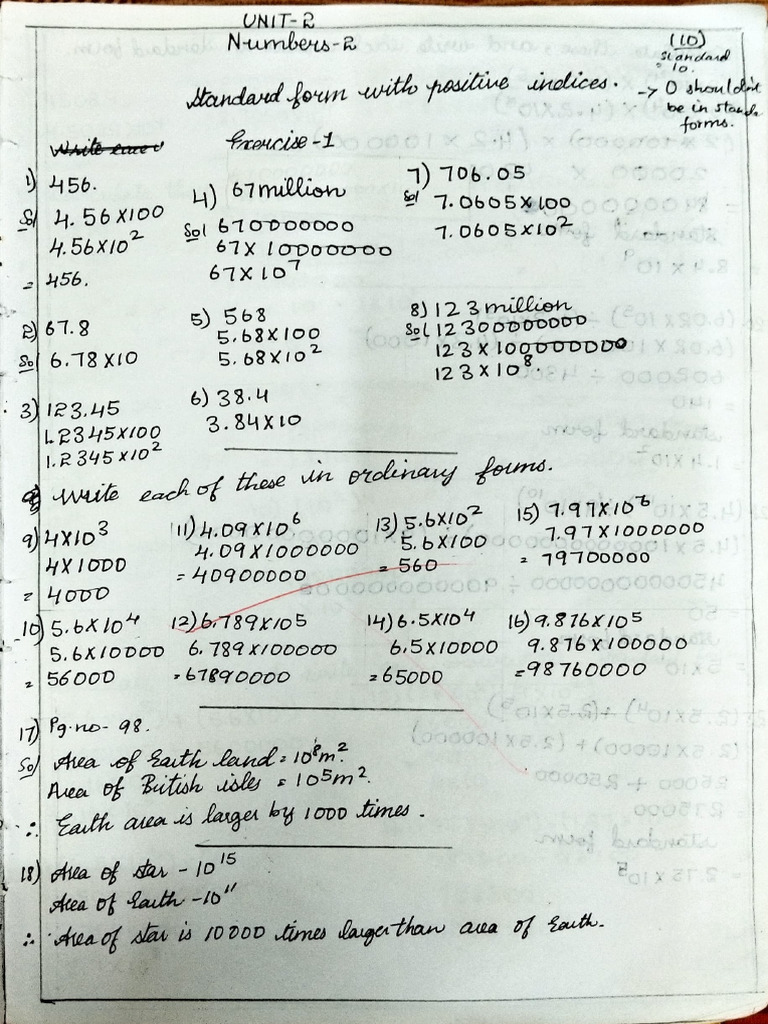 UNIT-2
Numbers-2
(10)
standard
10.
-> 0 shouldn't
be in stand
forms.
Standard form with positive indices.
Exercise-1
1) 456.
Sol 4.56×100
4.56×10²
= 456.
2) 67.8
Sol 6.78×10
3) 123.45
1.2345×100
1.2345×10²
4) 67 million
Sol 670000000
67×10000000
67×10⁷
5) 568
5.68×100
5.68×10²
6) 38.4
3.84×10
7) 706.05
Sol 7.0605×100
7.0605×10²
8) 123 million
Sol 12300000000
123×100000000
123×10⁸.
Write each of these in ordinary forms.
9) 4×10³
4×1000
= 4000
10) 5.6×10⁴
5.6×10000
= 56000
11) 4.09×10⁶
4.09×1000000
= 40900000
12) 6.789×10⁵
6.789×100000
= 67890000
13) 5.6×10²
5.6×100
= 560
14) 6.5×10⁴
6.5×10000
= 65000
15) 7.97×10⁶
7.97×1000000
= 79700000
16) 9.876×10⁵
9.876×100000
= 98760000
17) Pg.no- 98.
Sol Area of Earth land = 10⁸m².
Area of British isles = 10⁵m².
∴ Earth area is larger by 1000 times.
18) Area of star - 10¹⁵
Area of Earth - 10¹¹
∴ Area of star is 10000 times larger than area of Earth.